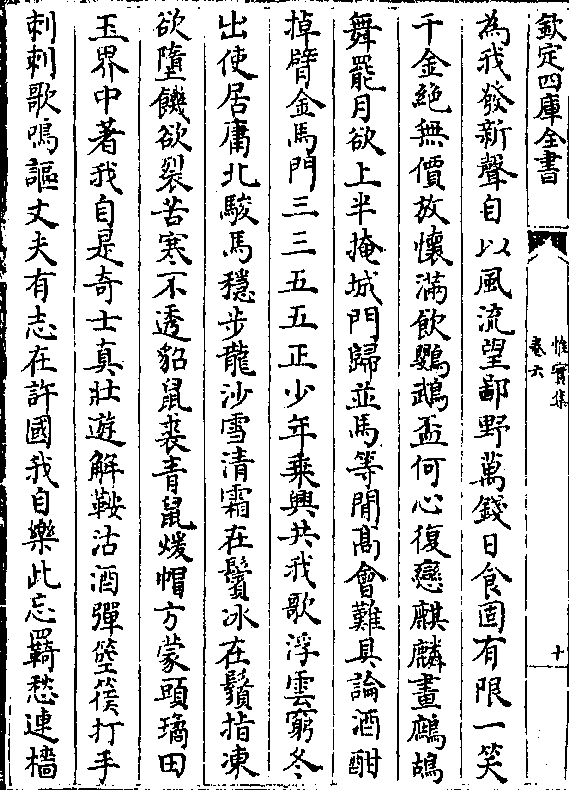 欽定四庫全書
惟實集
卷六
十
為我發新聲自以風流望鄙野萬錢日食固有限一笑
千金絶無價放懷滿飲鸚鵡盃何心復戀麒麟畫鷓鴣
舞罷月欲上半掩城門歸並馬等閒髙會難具論酒酣
掉臂金馬門三三五五正少年乘興共我歌浮雲窮冬
出使居庸北駿馬穩步龍沙雪清霜在鬢冰在鬚指凍
欲墮饑欲裂苦寒不透貂鼠裘青鼠煖帽方蒙頭璚田
玉界中著我自是奇士真壯遊解鞍沽酒彈箜篌打手
刺刺歌鳴謳丈夫有志在許國我自樂此忘羇愁連檣